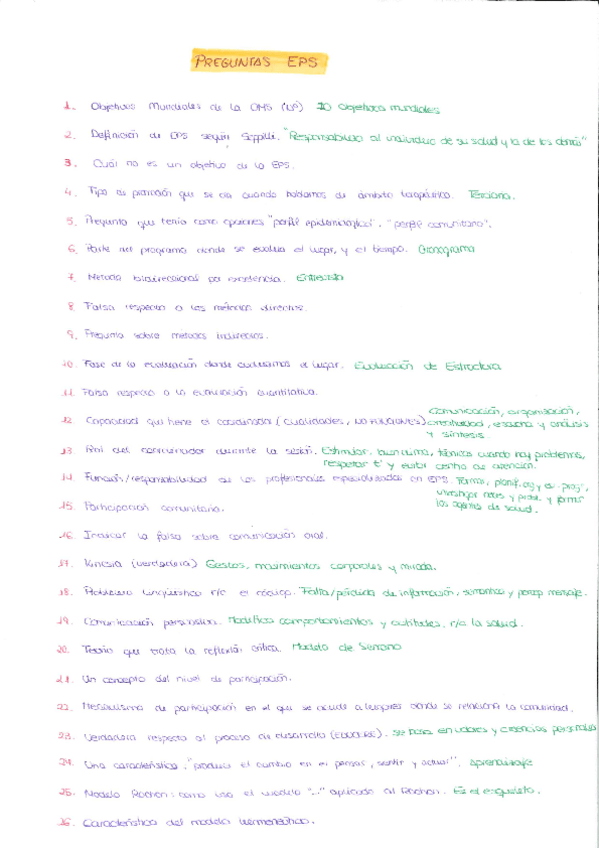 PREGUNTAS EPS
1. Objetivos Mundiales de la OMS (UD) 10 objetivos mundiales
2. Definición de EPS según Seppilli. "Responsabiliza al individuo de su salud y la de los demás"
3. Cuál no es un objetivo de la EPS.
4. Tipo de prevención que se da cuando hablamos de ámbito terapéutico. Terciaria.
5. Pregunta que tenía como opciones "perfil epidemiológico", "perfil comunitario".
6. Parte del programa donde se evalúa el lugar, y el tiempo. Cronograma
7. Método bidireccional por excelencia. Entrevista
8. Falsa respecto a los métodos directos.
9. Pregunta sobre métodos indirectos.
10. Fase de la evaluación donde evaluamos el lugar. Evaluación de Estructura
11. Falsa respecto a la evaluación cuantitativa.
12. Capacidad que tiene el coordinador (cualidades, NO FUNCIONES) comunicación, organización,
creatividad, escucha y análisis
y síntesis.
13. Rol del coordinador durante la sesión. Estimular, buen clima, técnicas cuando hay problemas,
respetar t' y evitar centro de atención.
14. Función/responsabilidad de los profesionales especializados en EPS. Formar, planif, org y ev. progr,
investigar neces y probl. y formar
los agentes de salud.
15. Participación comunitaria.
16. Indicar la falsa sobre comunicación oral.
17. Kinesia (verdadera) Gestos, movimientos corporales y mirada.
18. Problema lingüístico r/c el código. Falta/pérdida de información, semántica y percep mensaje.
19. Comunicación persuasiva. Modifica comportamientos y actitudes, r/c la salud.
20. Teoría que trata la reflexión crítica. Modelo de Serrano
21. Un concepto del nivel de participación.
22. Mecanismo de participación en el que se acude a lugares donde se relaciona la comunidad.
23. Verdadera respecto al proceso de desarrollo (Educador). Se basa en valores y creencias personales
24. Una característica: "produce el cambio en el pensar, sentir y actuar". Aprendizaje
25. Modelo Rochon: como usa el modelo "..." aplicado al Rochon. Es el esqueleto.
26. Característica del modelo hermenéutico.